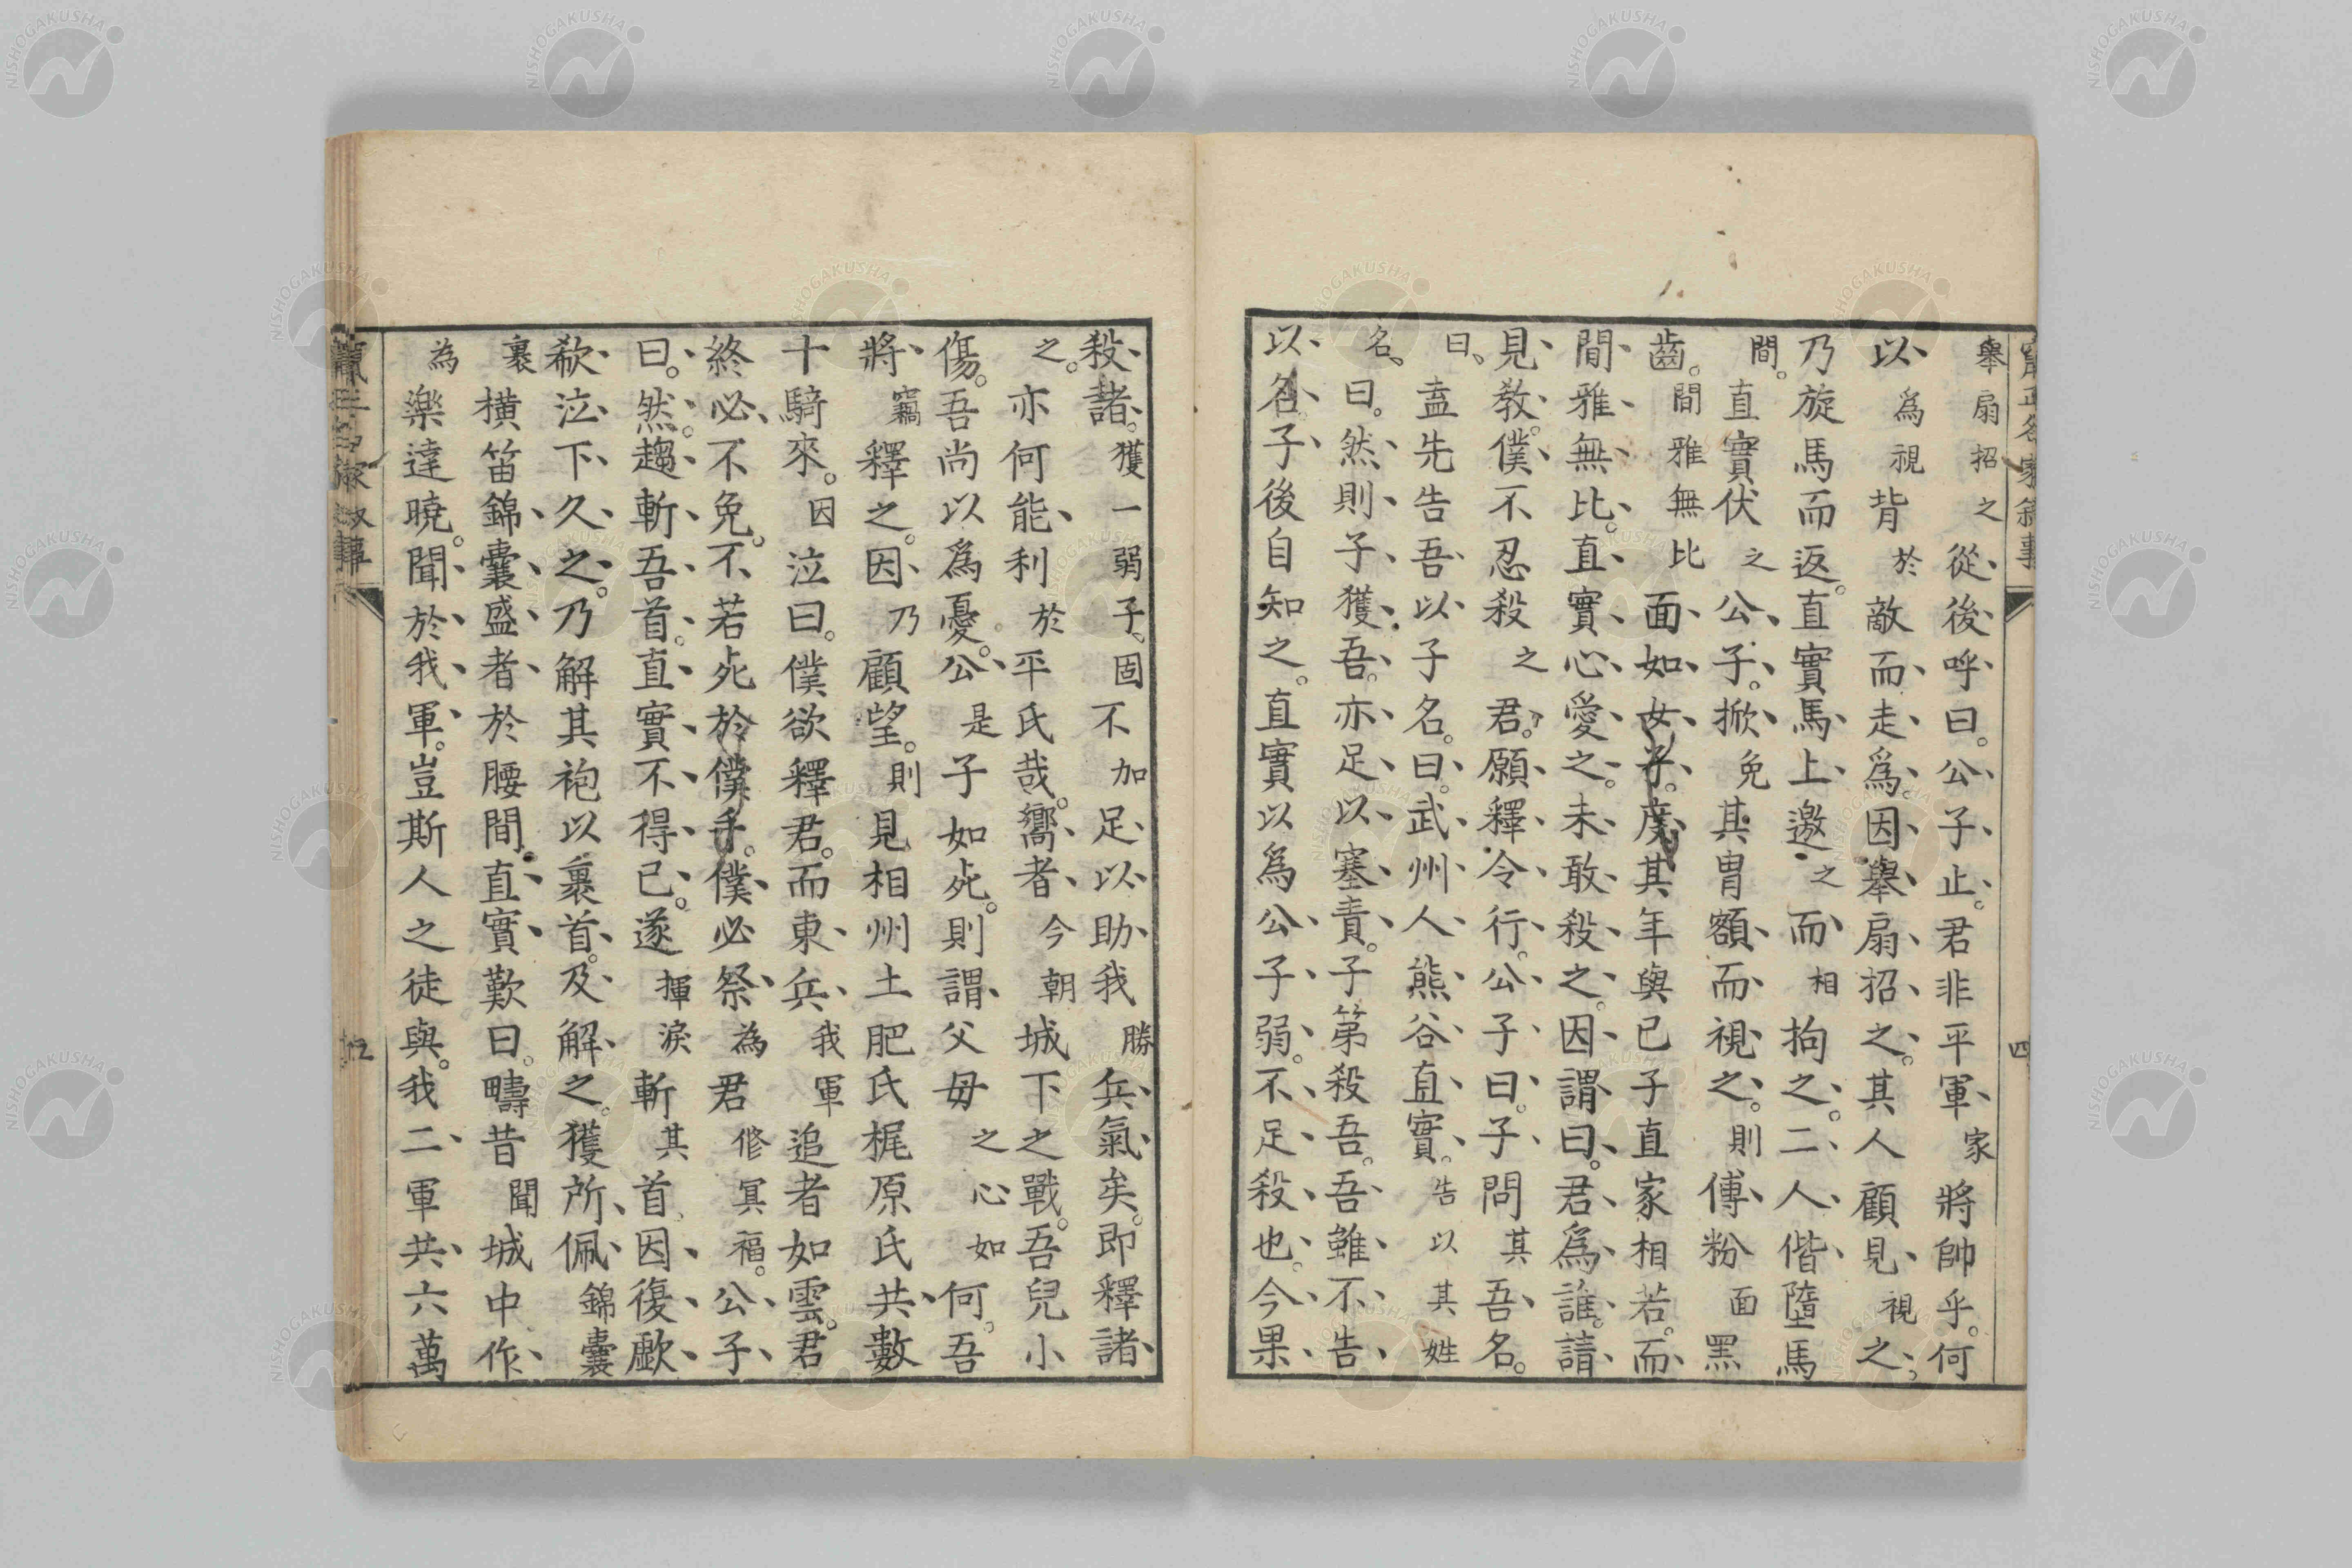 舉扇招之從後呼曰。公子止。君非平軍家將帥乎。何
以為視背於敵而走為。因舉扇招之。其人顧見視之。
乃旋馬而返。直實馬上邀之而相拘之。二人偕墮馬
間。直實伏之公子。掀免其冑額而視之。則傅粉面黑
齒。間雅無比面如女子。度其年與已子直家相若。而
間雅無比。直實心愛之。未敢殺之。因謂曰。君為誰。請
見教。僕不忍殺之君。願釋令行。公子曰。子問其吾名。
曰、盍先告吾以子名。曰。武州人熊谷直實。告以其姓
名、曰。然則子獲吾。亦足以塞責。子第殺吾。吾雖不告
以名子後自知之。直實以為公子弱。不足殺也。今果
殺諸。獲一弱子、固不加足以助我勝兵氣矣。即釋諸
之。亦何能利於平氏哉。嚮者今朝城下之戰。吾兒小
傷。吾尚以為憂。公是子如死。則謂父毋之心如何。吾
將竊釋之。因乃顧望。則見相州土肥氏梶原氏共數
十騎來。因泣曰。僕欲釋君。而東兵我軍追者如雲。君
終必不免。不若死於僕手。僕必祭為君修冥福。公子
曰。然。趨斬吾首。直實不得已。遂揮淚斬其首、因復歔
欷泣下久之。乃解其袍以裹首。及解之。獲所佩錦囊
裹橫笛錦囊盛者於腰間。直實歎曰。疇昔聞城中作
為楽達曉。聞於我軍。豈斯人之徒與。我二軍共六萬
NISHOGAKUSHA